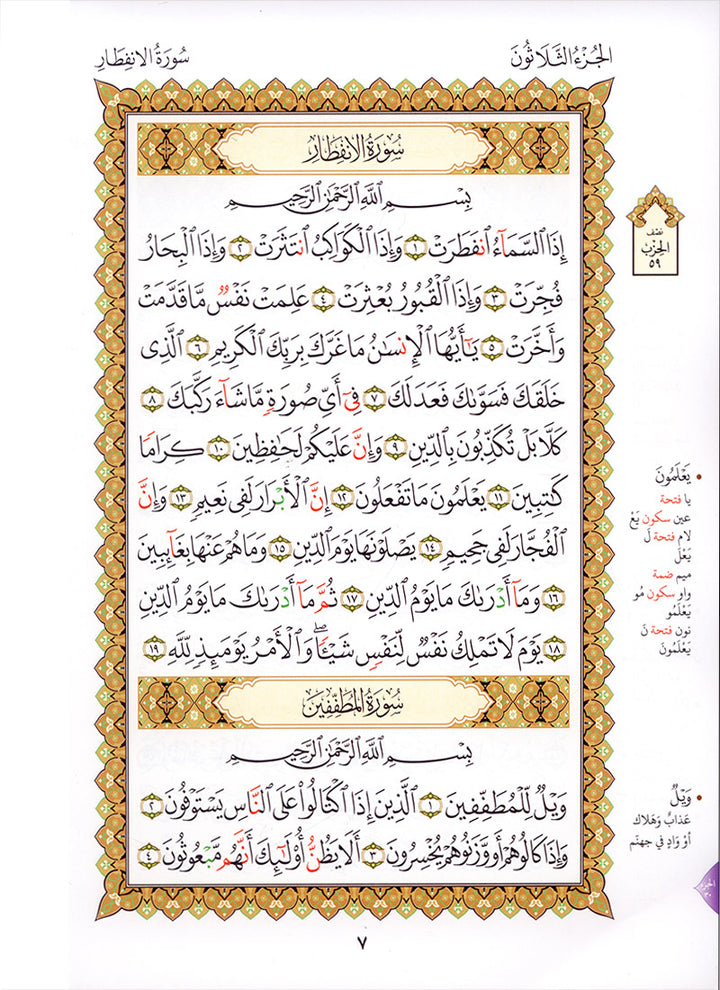 الجُزْءُ الثَّلَاثُونَ
سُورَةُ الانفِطَارِ
سُورَةُ الانفِطَارِ
بِسْمِ ٱللَّهِ ٱلرَّحْمَٰنِ ٱلرَّحِيمِ
إِذَا ٱلسَّمَآءُ ٱنفَطَرَتْ ١ وَإِذَا ٱلْكَوَاكِبُ ٱنتَثَرَتْ ٢ وَإِذَا ٱلْبِحَارُ
فُجِّرَتْ ٣ وَإِذَا ٱلْقُبُورُ بُعْثِرَتْ ٤ عَلِمَتْ نَفْسٌ مَّا قَدَّمَتْ
وَأَخَّرَتْ ٥ يَٰٓأَيُّهَا ٱلْإِنسَٰنُ مَا غَرَّكَ بِرَبِّكَ ٱلْكَرِيمِ ٦ ٱلَّذِى
خَلَقَكَ فَسَوَّىٰكَ فَعَدَلَكَ ٧ فِىٓ أَىِّ صُورَةٍ مَّا شَآءَ رَكَّبَكَ ٨
كَلَّا بَلْ تُكَذِّبُونَ بِٱلدِّينِ ٩ وَإِنَّ عَلَيْكُمْ لَحَٰفِظِينَ ١٠ كِرَامًا
كَٰتِبِينَ ١١ يَعْلَمُونَ مَا تَفْعَلُونَ ١٢ إِنَّ ٱلْأَبْرَارَ لَفِى نَعِيمٍ ١٣ وَإِنَّ
ٱلْفُجَّارَ لَفِى جَحِيمٍ ١٤ يَصْلَوْنَهَا يَوْمَ ٱلدِّينِ ١٥ وَمَا هُمْ عَنْهَا بِغَآئِبِينَ
١٦ وَمَآ أَدْرَىٰكَ مَا يَوْمُ ٱلدِّينِ ١٧ ثُمَّ مَآ أَدْرَىٰكَ مَا يَوْمُ ٱلدِّينِ
١٨ يَوْمَ لَا تَمْلِكُ نَفْسٌ لِّنَفْسٍ شَيْـًٔا ۖ وَٱلْأَمْرُ يَوْمَئِذٍ لِّلَّهِ ١٩
سُورَةُ المُطَفِّفِينَ
بِسْمِ ٱللَّهِ ٱلرَّحْمَٰنِ ٱلرَّحِيمِ
وَيْلٌ لِّلْمُطَفِّفِينَ ١ ٱلَّذِينَ إِذَا ٱكْتَالُوا۟ عَلَى ٱلنَّاسِ يَسْتَوْفُونَ ٢
وَإِذَا كَالُوهُمْ أَو وَّزَنُوهُمْ يُخْسِرُونَ ٣ أَلَا يَظُنُّ أُو۟لَٰٓئِكَ أَنَّهُم مَّبْعُوثُونَ ٤
نصف
الحِزْب
٥٩
يَعْلَمُونَ
يا فتحة
عين سكون يَعْ
لام فتحة لَ
يَعْلَ
ميم ضمة
واو سكون مُو
يَعْلَمُو
نون فتحة نَ
يَعْلَمُونَ
وَيْلٌ
عَذابٌ وَهَلاك
أوْ وَادٍ في جهنّم
الجزء
٣٠
٧